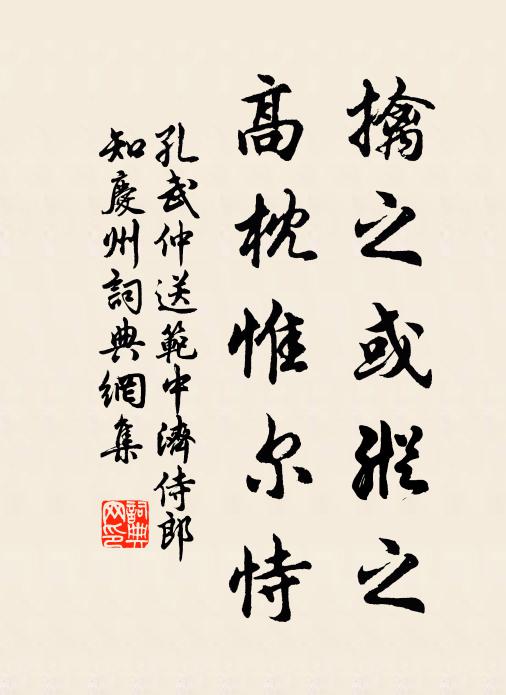 擒之或縱之
高枕惟尔恃
孔武仲送範中濟侍郎
知慶州詞典網集
詞典网印